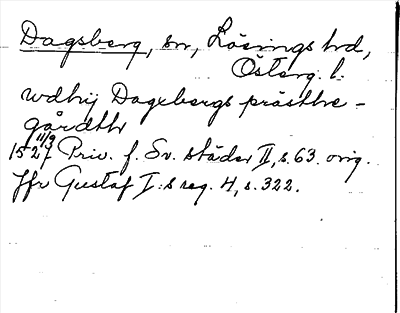 Dagsberg, sn, Lösings hd,
Österg. l.
wdhij Dagxbergs prästhe-
gårdthr
1527 11/9 Priv. f. Sv. städer II, s. 63. orig.
Jfr Gustaf I:s reg. 4, s. 322.